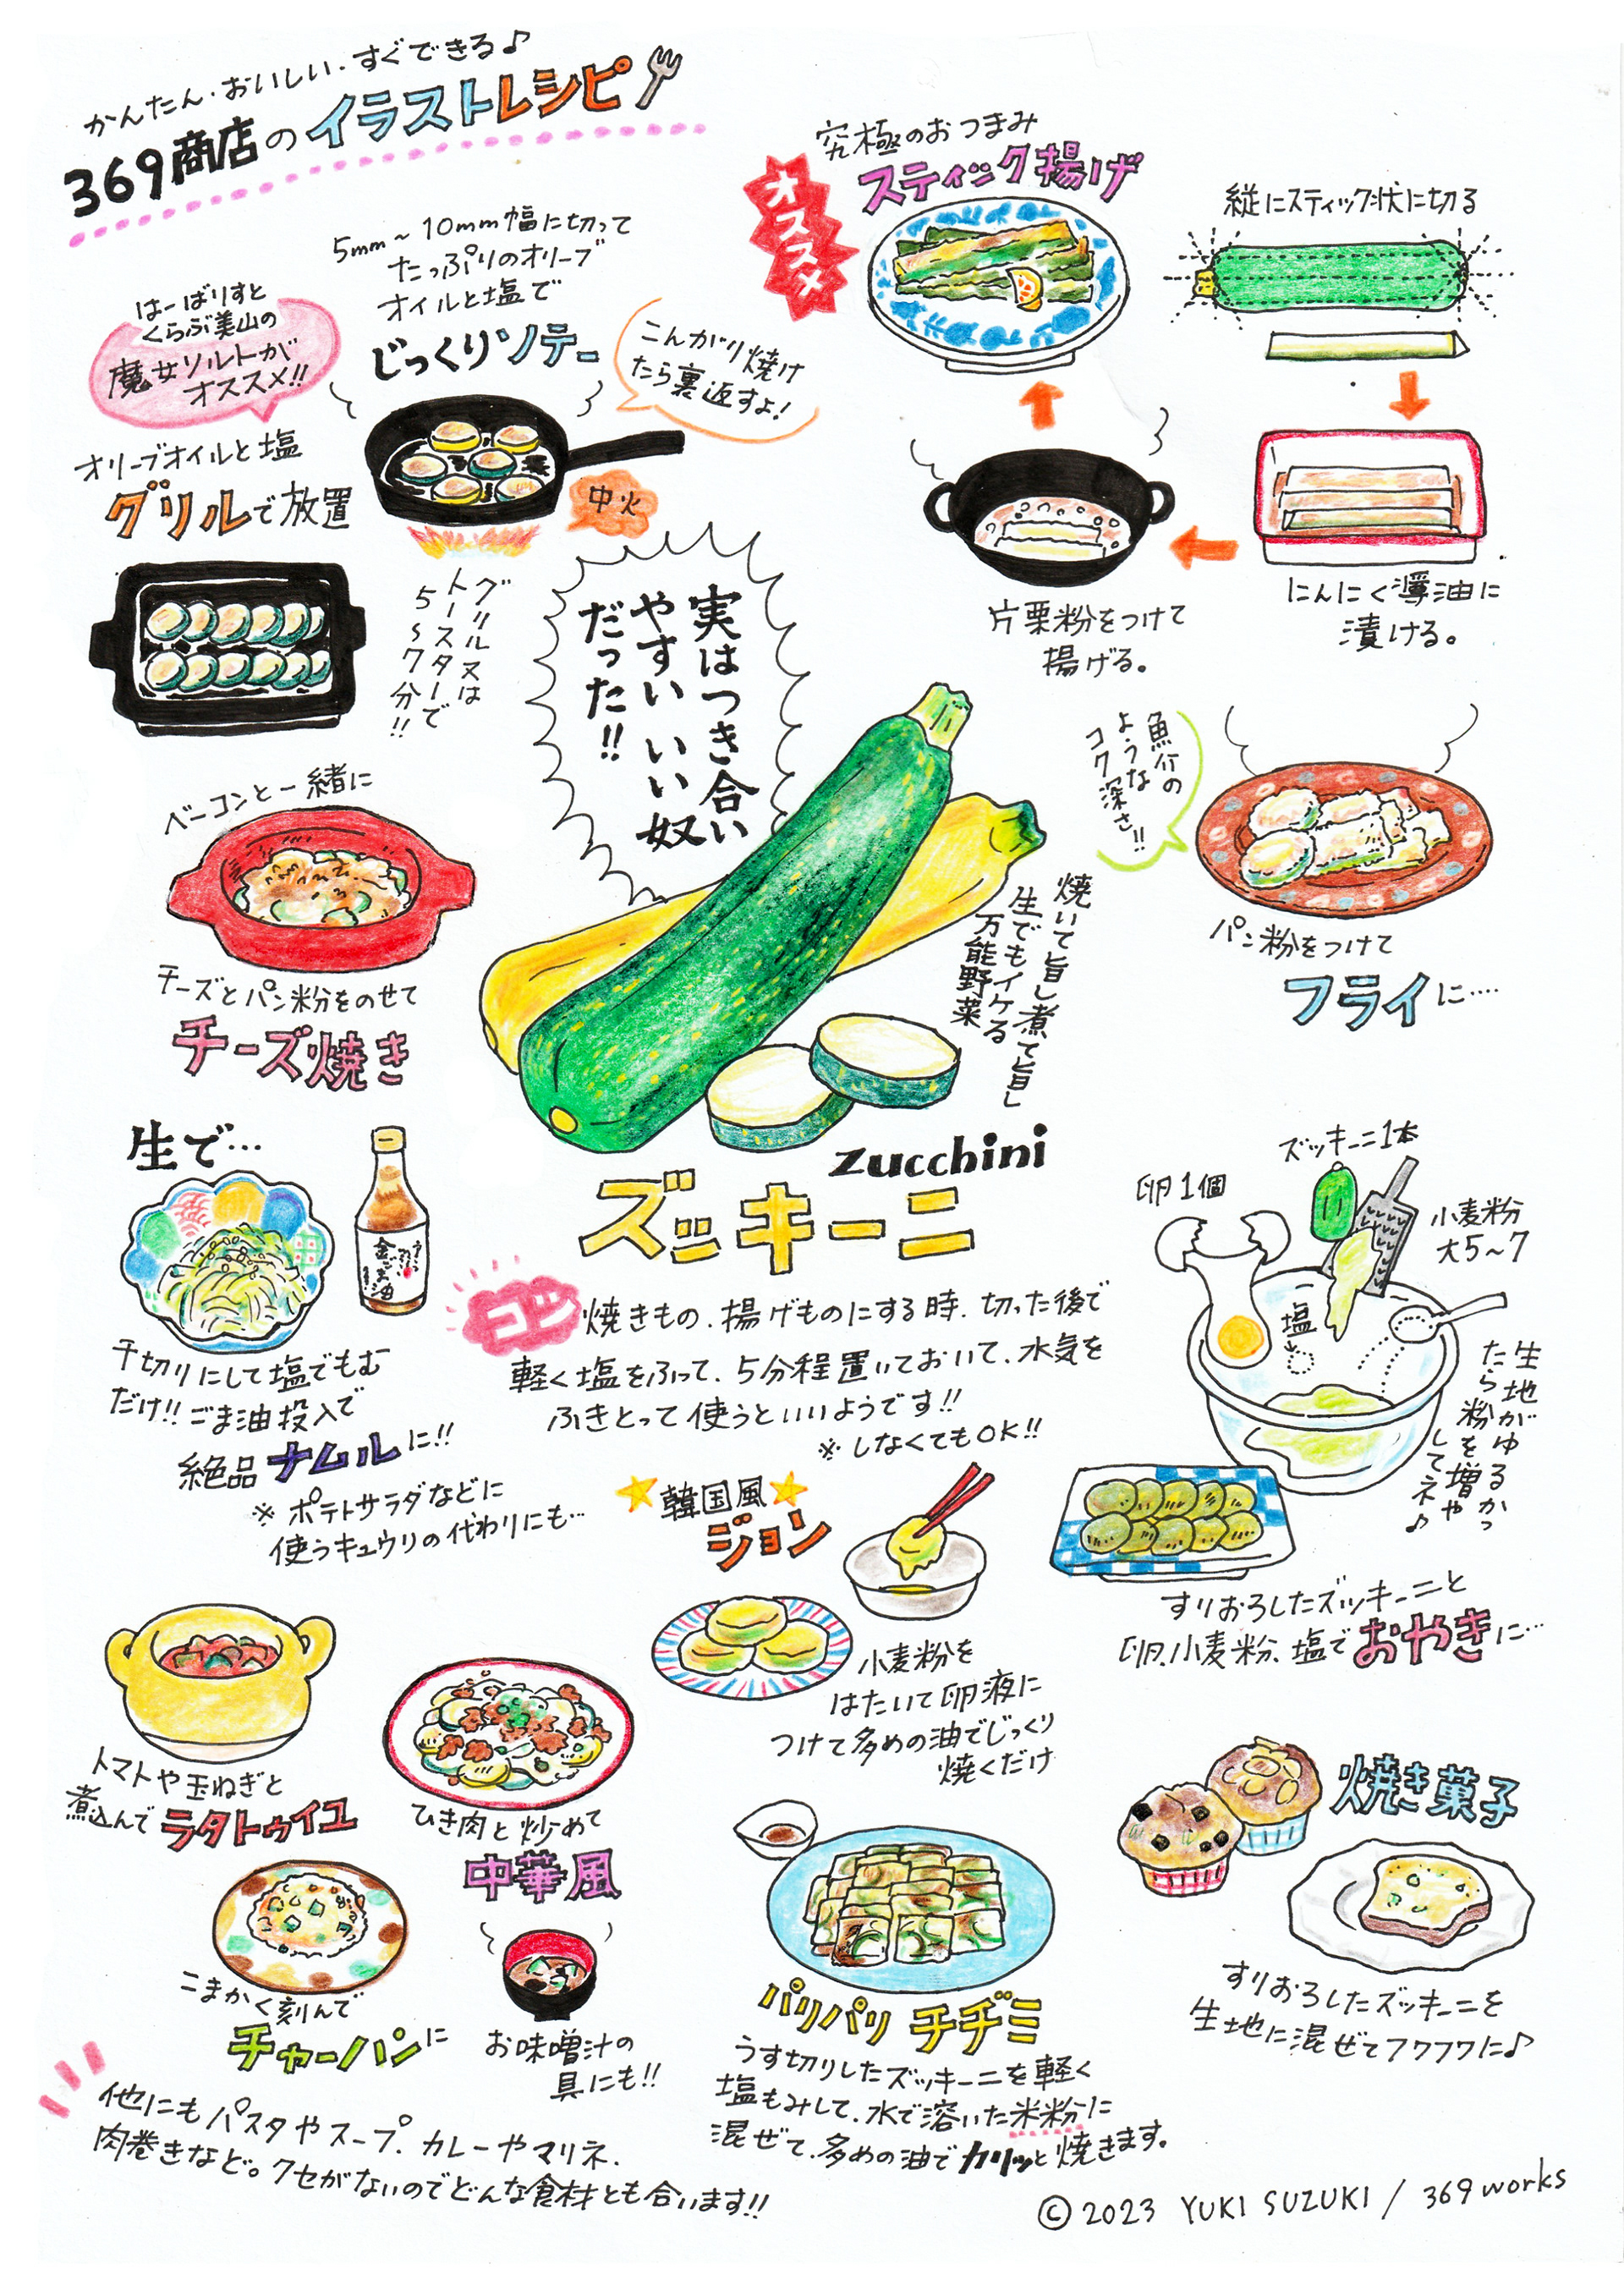 かんたん・おいしい・すぐできる♪
369商店のイラストレシピ
5mm~10mm幅に切って
たっぷりのオリーブ
オイルと塩で
じっくりソテー
こんがり焼け
たら裏返すよ!
中火
はーばりすと
くらぶ美山の
魔女ソルトが
オススメ!!
オリーブオイルと塩
グリルで放置
グリル又は
トースターで
5~7分!!
オススメ
究極のおつまみ
スティック揚げ
縦にスティック状に切る
にんにく醤油に
漬ける。
片栗粉をつけて
揚げる。
実はつき合い
やすいいい奴
だった!!
魚介の
ような
コク深さ!!
パン粉をつけて
フライに….
ベーコンと一緒に
チーズとパン粉をのせて
チーズ焼き
焼いて旨し煮て旨し
生でもイケる
万能野菜
zucchini
ズッキーニ
コツ 焼きもの、揚げものにする時、切った後で
軽く塩をふって、5分程置いておいて、水気を
ふきとって使うといいようです!!
※しなくてもOK!!
生で…
金ごま油
千切りにして塩でもむ
だけ!!ごま油投入で
絶品ナムルに!!
※ポテトサラダなどに
使うキュウリの代わりにも…
ズッキーニ1本
卵1個
小麦粉
大5~7
塩
生地がゆるかっ
たら粉を増や
してネ♪
すりおろしたズッキーニと
卵、小麦粉、塩でおやきに…
韓国風
ジョン
小麦粉を
はたいて卵液に
つけて多めの油でじっくり
焼くだけ
トマトや玉ねぎと
煮込んでラタトゥイユ
ひき肉と炒めて
中華風
こまかく刻んで
チャーハンに
お味噌汁の
具にも!!
パリパリチヂミ
うす切りしたズッキーニを軽く
塩もみして、水で溶いた米粉に
混ぜて、多めの油でカリッと焼きます。
焼き菓子
すりおろしたズッキーニを
生地に混ぜてフワフワに♪
他にもパスタやスープ、カレーやマリネ、
肉巻きなど。クセがないのでどんな食材とも合います!!
©2023 YUKI SUZUKI / 369works